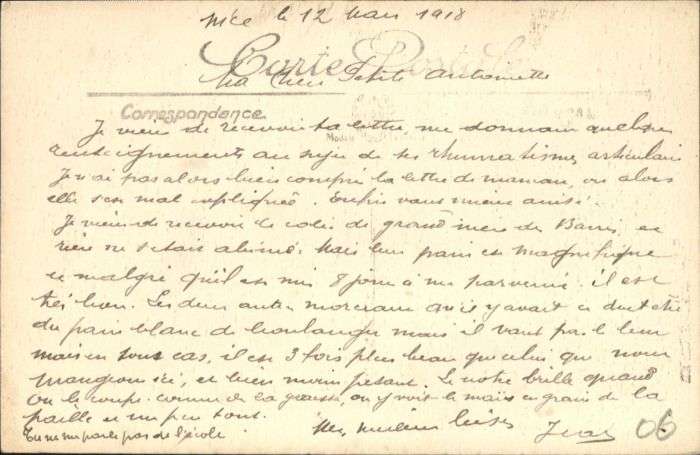 Nice le 12 Mars 1918
Carte Postale
Ma Chère Petite Antoinette
Correspondance
Je viens de recevoir ta lettre, me donnant quelques
renseignements au sujet de tes rhumatismes articulaires
Je n'ai pas alors bien compris la lettre de maman, ou alors
elle s'en mal expliquée. Enfin vaut mieux ainsi.
Je viens de recevoir le colis de grand mère des Barris, et
rien ne s'etait abimé. Mais leur pain est magnifique
et malgré qu'il est mis 8 jours à me parvenir il est
très bon. Les deux autres morceaux qu'il y avait a du être
du pain blanc de boulanger mais il vaut pas le leur
mais en tout cas, il est 3 fois plus beau que celui que nous
mangeons ici, et bien moins pesant. Le notre brille quand
on le coupe comme de la graisse, on y voit le mais en grain de la
paille et un peu tout.
Tu ne me parle pas de l'école. Mes meilleurs baisers Jean
06